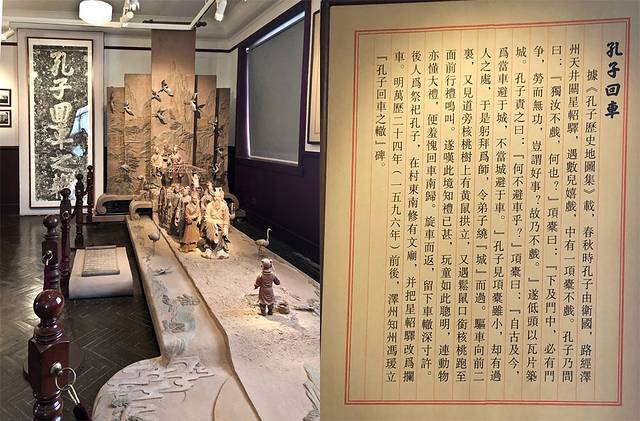 孔子回車之轍
孔子回車
據《孔子歷史地圖集》載，春秋時孔子由衛國，路經澤
州天井關星軺驛，遇數兒嬉戲，中有一項橐不戲。孔子乃問
曰：『獨汝不戲，何也？』項橐曰：『下及門中，必有鬥
争，勞而無功，豈謂好事？故乃不戲。』遂低頭以瓦片築
城。孔子責之曰：『何不避車乎？』項橐曰：『自古及今，
爲當車避于城，不當城避于車。』孔子見項橐雖小，却有過
人之處，于是躬拜爲師，令弟子繞『城』而過。驅車向前二
裏，又見道旁核桃樹上有黄鼠拱立，又遇鬆鼠口銜核桃跑至
面前行禮鳴叫。遂嘆此境知禮已甚，玩童如此聰明，連動物
亦懂大禮，便羞愧回車南歸。旋車而返，留下車轍深寸許。
後人爲祭祀孔子，在村東南修有文廟，并把星軺驛改爲攔
車。明萬歷二十四年（一五九六年）前後，澤州知州馮瑗立
『孔子回車之轍』碑。